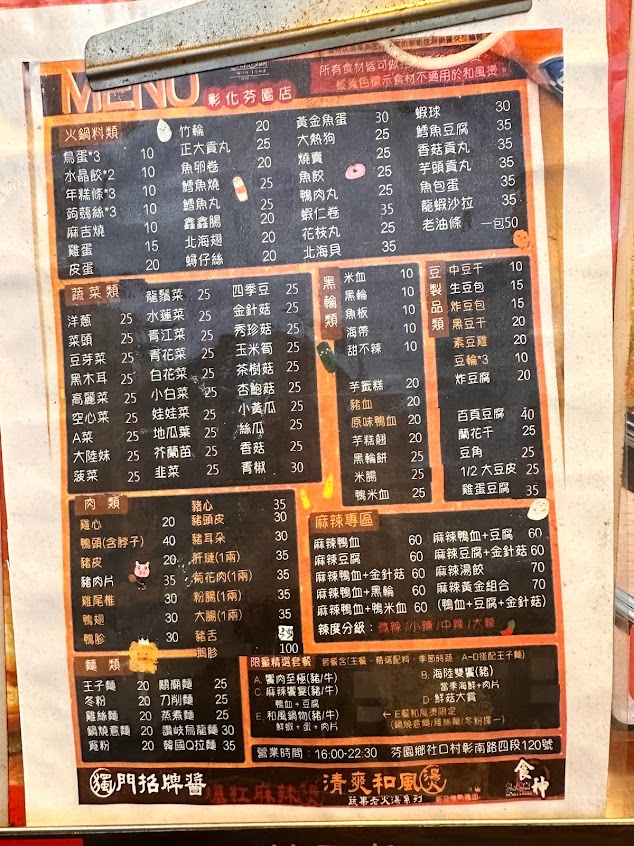 MENU 彰化芬園店
所有食材皆可做
橙黃色標示食材不適用於和風燙。
火鍋料類
鳥蛋*3 10
水晶餃*2 10
年糕條*3 10
蒟蒻絲*3 10
麻吉燒 10
雞蛋 15
皮蛋 20
竹輪 20
正大貢丸 25
魚卵卷 20
鱈魚燒 25
鱈魚丸 25
鑫鑫腸 20
北海翅 20
蟳仔絲 20
黃金魚蛋 30
大熱狗 25
燒賣 25
魚餃 25
鴨肉丸 25
蝦仁卷 35
花枝丸 25
北海貝 35
蝦球 30
鱈魚豆腐 35
香菇貢丸 35
芋頭貢丸 35
魚包蛋 35
龍蝦沙拉 35
老油條 一包50
蔬菜類
洋蔥 25
菜頭 25
豆芽菜 25
黑木耳 25
高麗菜 25
空心菜 25
A菜 25
大陸妹 25
菠菜 25
龍鬚菜 25
水蓮菜 25
青江菜 25
青花菜 25
白花菜 25
小白菜 25
娃娃菜 25
地瓜葉 25
芥蘭苗 25
韭菜 25
四季豆 25
金針菇 25
秀珍菇 25
玉米筍 25
茶樹菇 25
杏鮑菇 25
小黃瓜 25
絲瓜 25
香菇 25
青椒 30
黑輪類
米血 10
黑輪 10
魚板 10
海帶 10
甜不辣 10
芋籤糕 20
豬血 20
原味鴨血 20
芋糕翹 20
黑輪餅 25
米腸 25
鴨米血 25
豆製品類
中豆干 10
生豆包 15
炸豆包 15
黑豆干 20
素豆雞 20
豆輪*3 10
炸豆腐 20
百頁豆腐 40
蘭花干 25
豆角 25
1/2大豆皮 25
雞蛋豆腐 35
肉類
雞心 20
鴨頭(含脖子) 40
豬皮 20
豬肉片 35
雞尾椎 30
鴨翅 30
鴨胗 30
豬心 35
豬頭皮 30
豬耳朵 30
肝腱(1兩) 35
菊花肉(1兩) 35
粉腸(1兩) 35
大腸(1兩) 35
豬舌
鵝胗 100
麻辣專區
麻辣鴨血 60
麻辣豆腐 60
麻辣鴨血+金針菇 60
麻辣鴨血+黑輪 60
麻辣鴨血+鴨米血 60
麻辣鴨血+豆腐 60
麻辣豆腐+金針菇 60
麻辣湯餃 70
麻辣黃金組合 70
(鴨血+豆腐+金針菇)
辣度分級:微辣/小辣/中辣/大辣
麵類
王子麵 20
冬粉 20
雞絲麵 20
鍋燒意麵 20
寬粉 20
關廟麵 25
刀削麵 25
蒸煮麵 25
讚岐烏龍麵 30
韓國Q拉麵 35
限量精選套餐 套餐含(主餐、精選配料、季節時蔬、A~D搭配王子麵)
A. 饗肉至極(豬/牛)
C. 麻辣饗宴(豬/牛)
鴨血+豆腐
E. 和風鍋物(豬/牛)
鮮蝦+蛋+肉片
B. 海陸雙饗(豬)
當季海鮮+肉片
D. 鮮菇大賞
←E餐和風燙限定
(鍋燒意麵/雞絲麵/冬粉擇一)
營業時間:16:00-22:30 芬園鄉社口村彰南路四段120號
獨門招牌醬 爆紅麻辣燙
清爽和風燙
蔬果杏火湯系列
食神